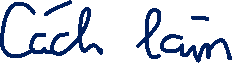 Cách làm